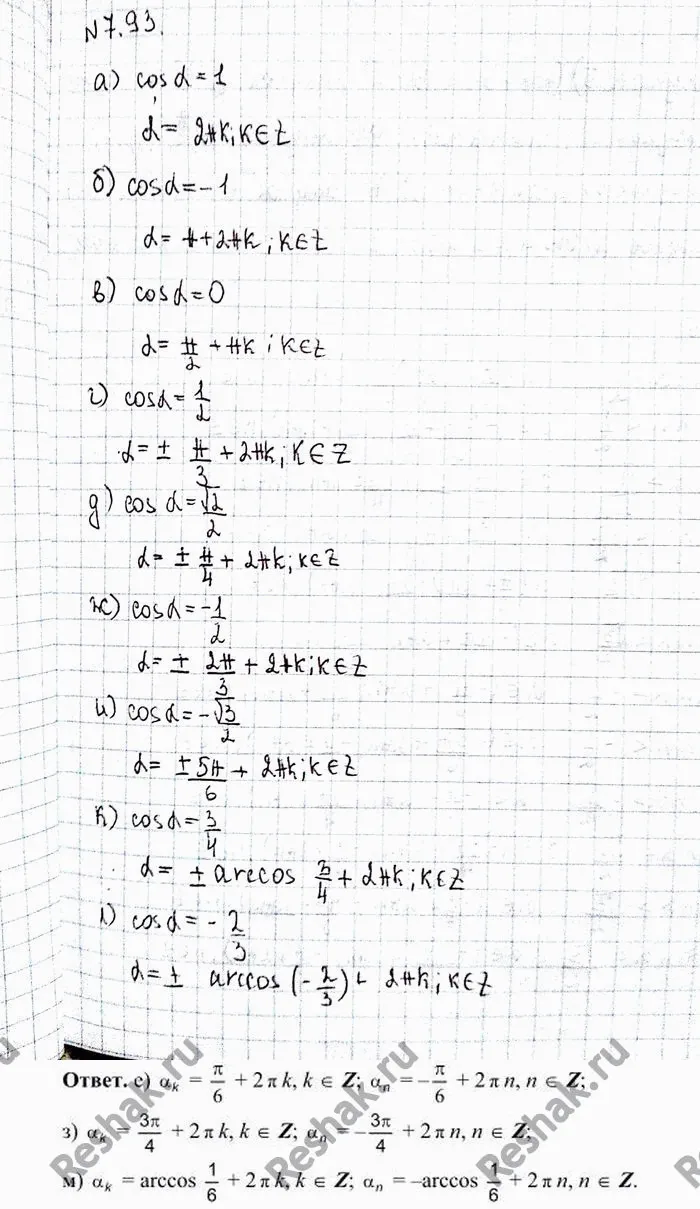 N7.93.
а) cos α = 1
α = 2πk; k ∈ Z
б) cos α = -1
α = π + 2πk; k ∈ Z
в) cos α = 0
α = π/2 + πk; k ∈ Z
г) cos α = 1/2
α = ± π/3 + 2πk; k ∈ Z
д) cos α = √2/2
α = ± π/4 + 2πk; k ∈ Z
ж) cos α = -1/2
α = ± 2π/3 + 2πk; k ∈ Z
и) cos α = -√3/2
α = ±5π/6 + 2πk; k ∈ Z
к) cos α = 3/4
α = ± arccos 3/4 + 2πk; k ∈ Z
л) cos α = - 2/3
α = ± arccos (-2/3) + 2πk; k ∈ Z
Ответ. е) αₖ = π/6 + 2πk, k ∈ Z; αₙ = –π/6 + 2πn, n ∈ Z;
з) αₖ = 3π/4 + 2πk, k ∈ Z; αₙ = –3π/4 + 2πn, n ∈ Z;
м) αₖ = arccos 1/6 + 2πk, k ∈ Z; αₙ = –arccos 1/6 + 2πn, n ∈ Z.
Reshak.ru
Reshak.ru
Reshak.ru